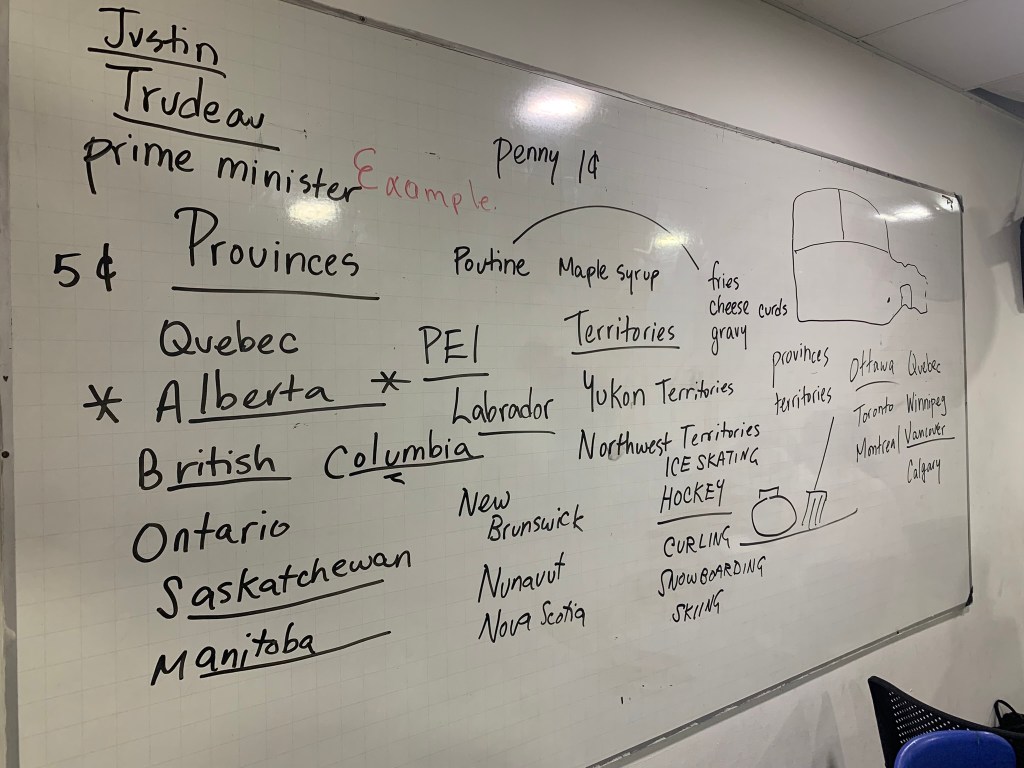 Justin
Trudeau
prime minister
Example.
Penny 1¢
5¢
Provinces
Quebec
* Alberta *
British Columbia
Ontario
Saskatchewan
Manitoba
PEI
Labrador
New
Brunswick
Nunavut
Nova Scotia
Poutine Maple syrup
fries
cheese curds
gravy
Territories
Yukon Territories
Northwest Territories
ICE SKATING
HOCKEY
CURLING
SNOWBOARDING
SKIING
provinces
territories
Ottawa Quebec
Toronto Winnipeg
Montreal Vancouver
Calgary